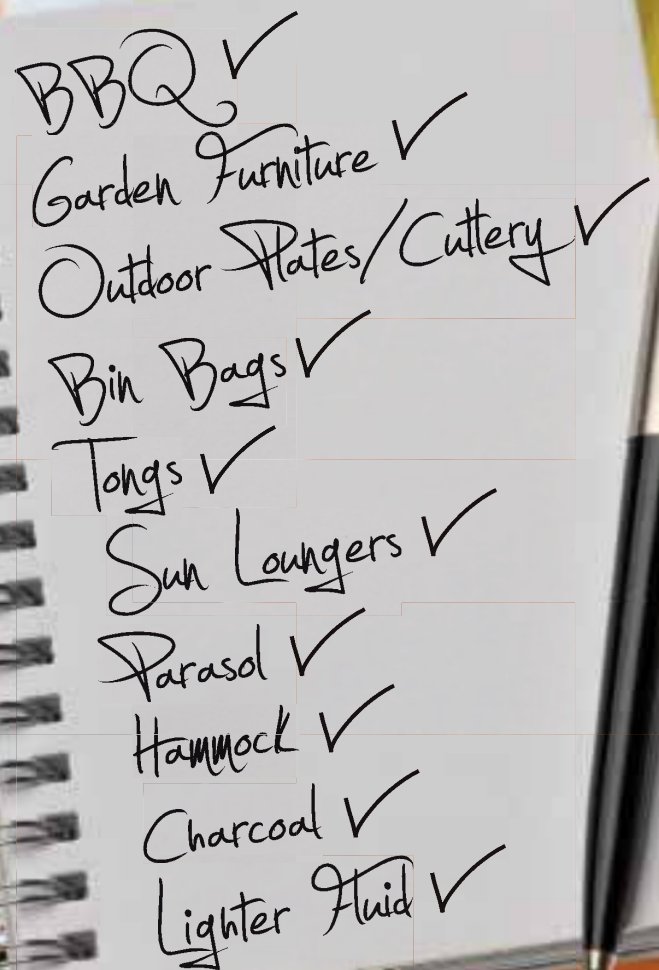 BBQ ✓
Garden Furniture ✓
Outdoor Plates/Cuttery ✓
Bin Bags ✓
Tongs ✓
Sun Loungers ✓
Parasol ✓
Hammock ✓
Charcoal ✓
Lighter Fluid ✓